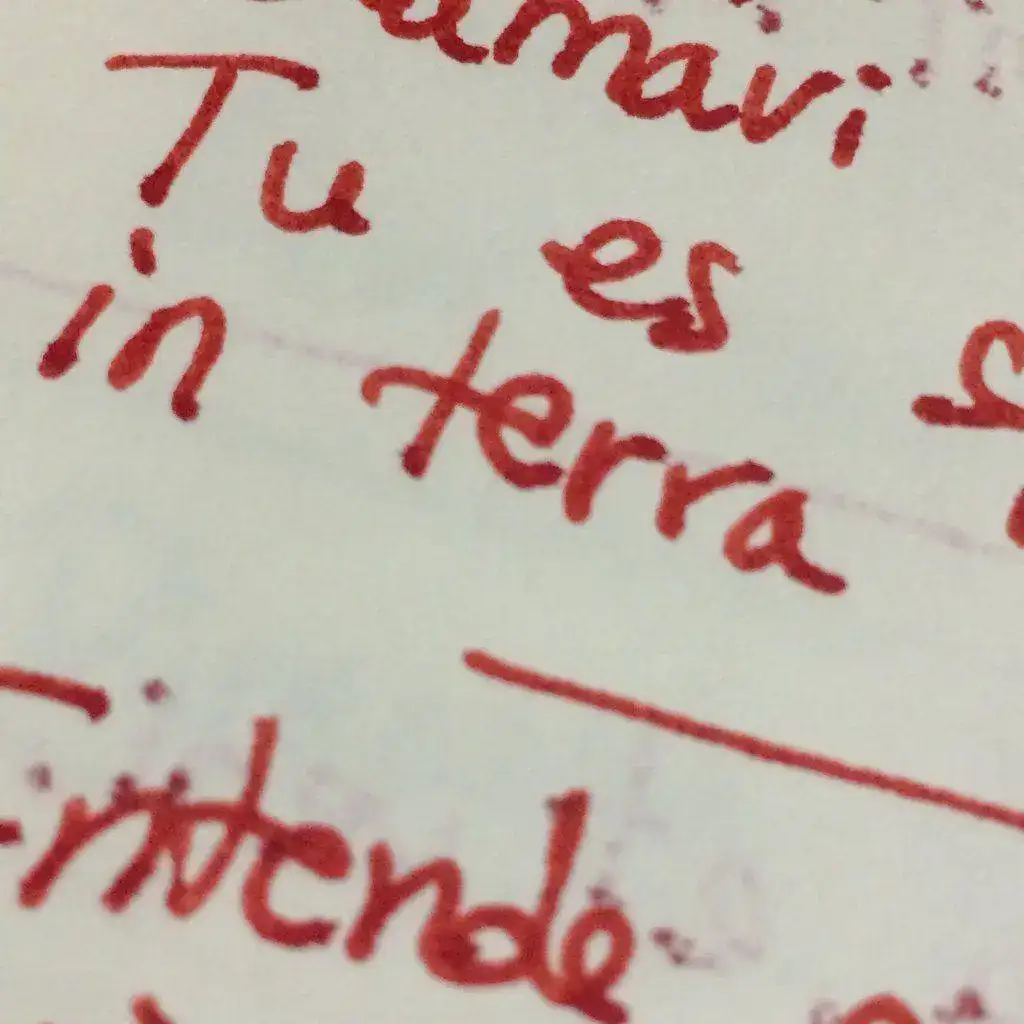 amavi
Tu es
in terra
Intende